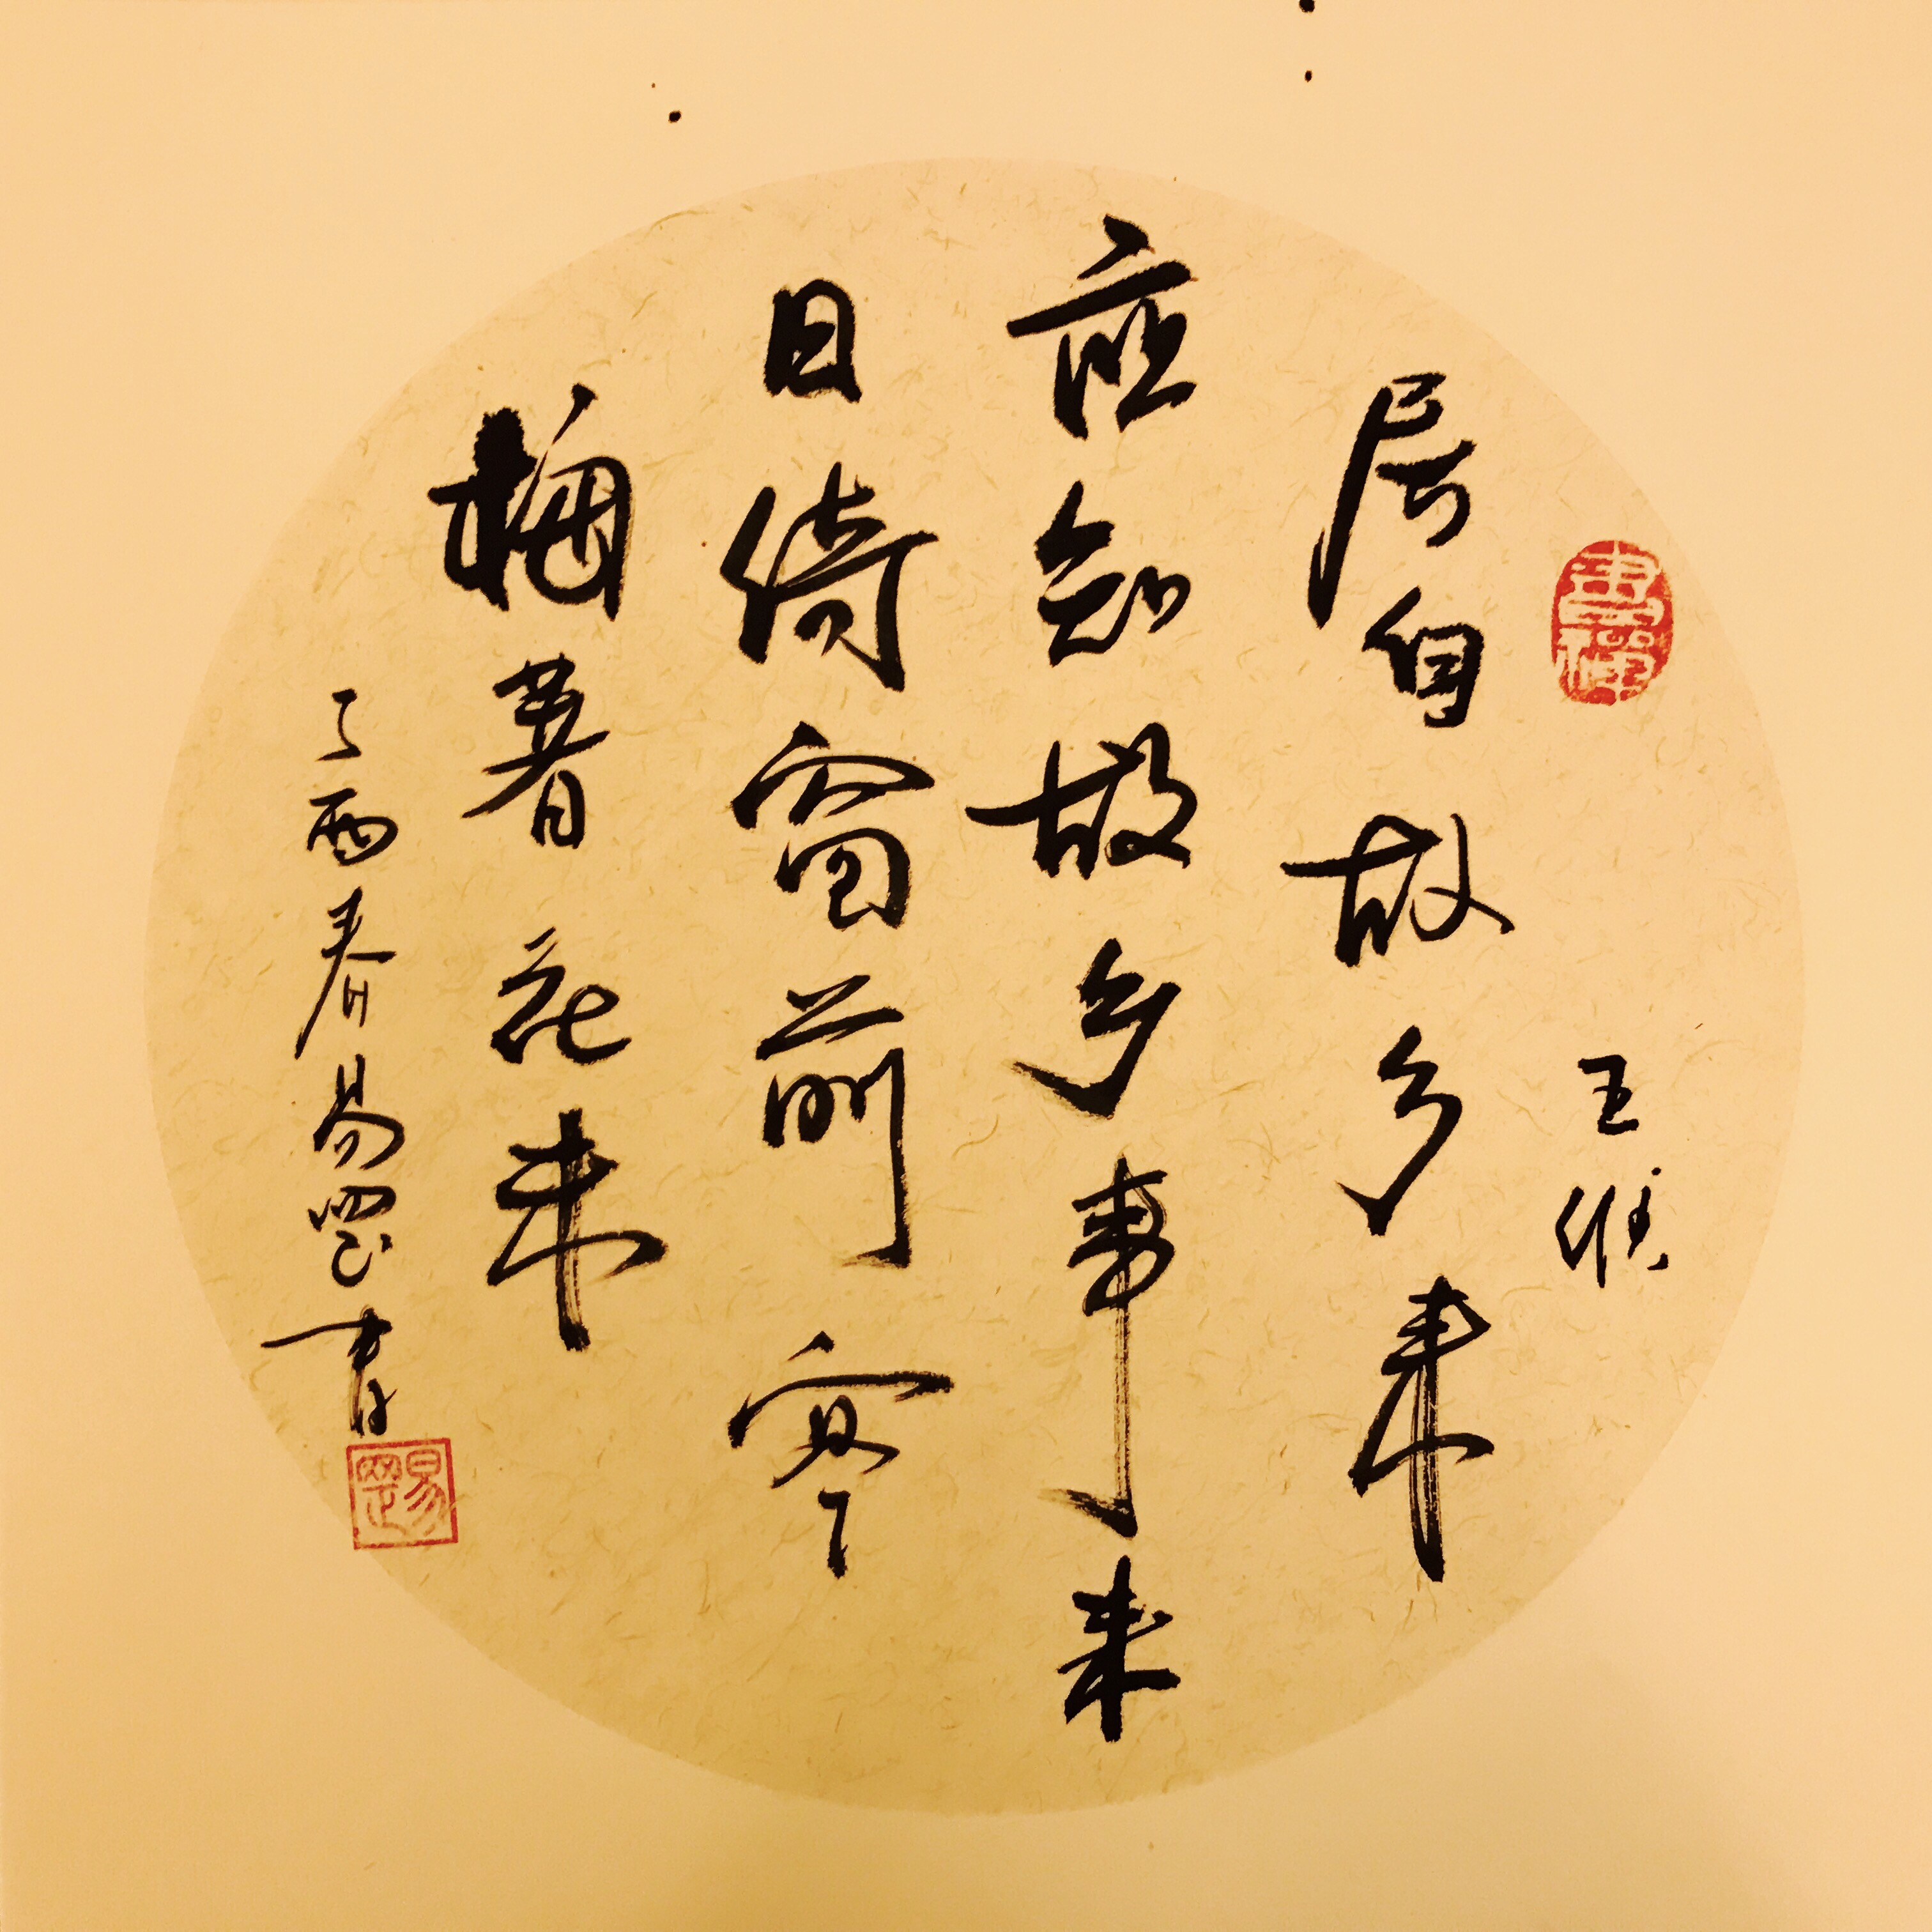 書禅
王维
君自故乡来
应知故乡事来
日绮窗前寒
梅著花未
丁酉春易罡书
易罡